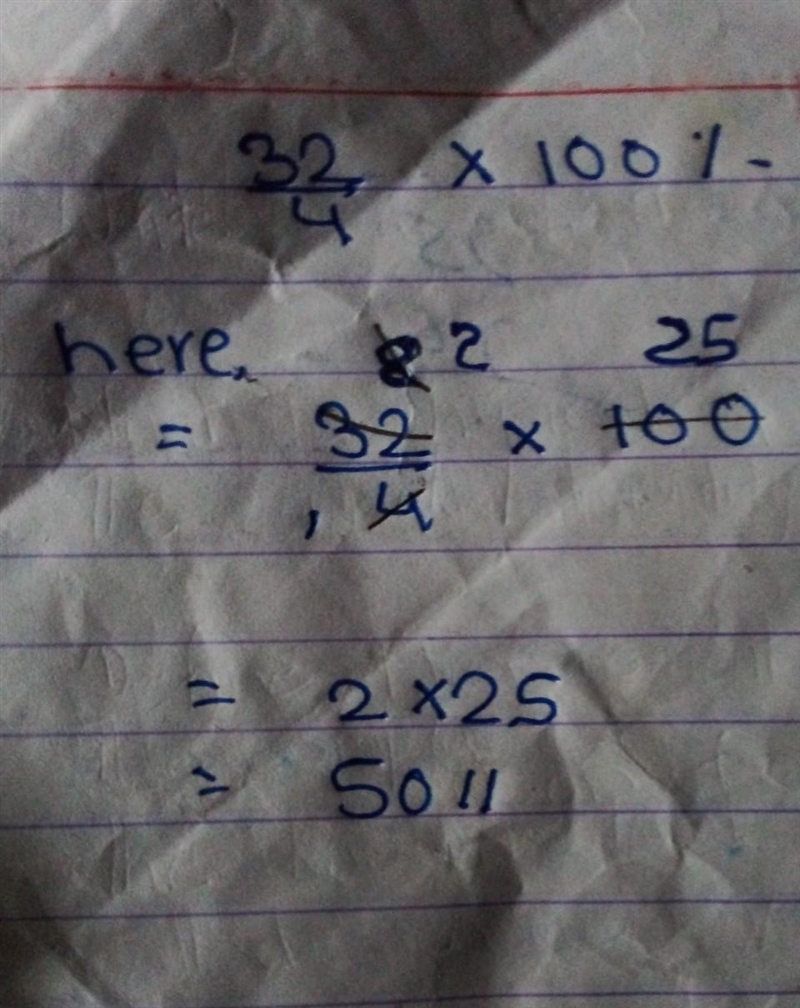 32/4 × 100%
here, 8 2 25
= 32/4 × 100
1
= 2×25
= 50//